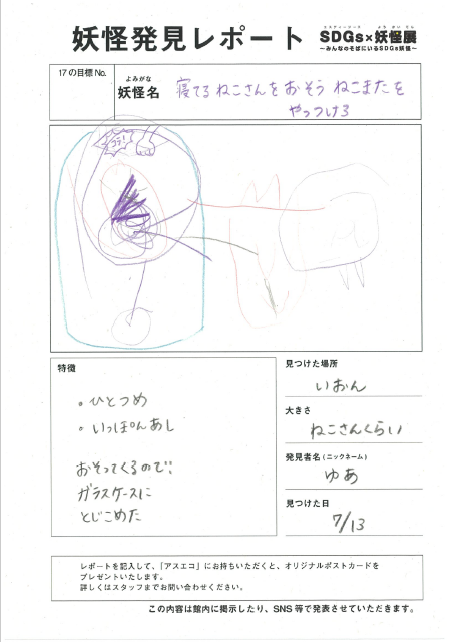 妖怪発見レポート
エスディージーズ ようかいてん
SDGs×妖怪展
～みんなのそばにいるSDGs妖怪～
17の目標No.
よみがな
妖怪名
寝てるねこさんをおそう ねこまたを
やっつけろ
コラ!
特徴
。ひとつめ
。いっぽんあし
おそってくるので!!
ガラスケースに
とじこめた
見つけた場所
いおん
大きさ
ねこさんくらい
発見者名(ニックネーム)
ゆあ
見つけた日
7/13
レポートを記入して、「アスエコ」にお持ちいただくと、オリジナルポストカードを
プレゼントいたします。
詳しくはスタッフまでお問い合わせください。
この内容は館内に掲示したり、SNS等で発表させていただきます。